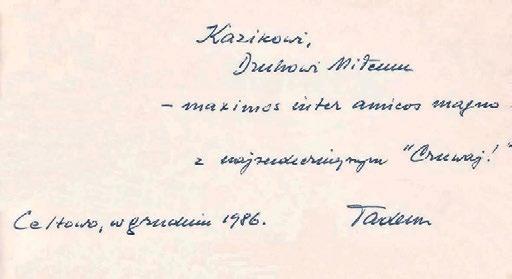 Kazikowi,
Druhowi Miłemu
- maximos inter amicos magno
z najserdeczniejszym "Czuwaj!"
w grudniu 1986.